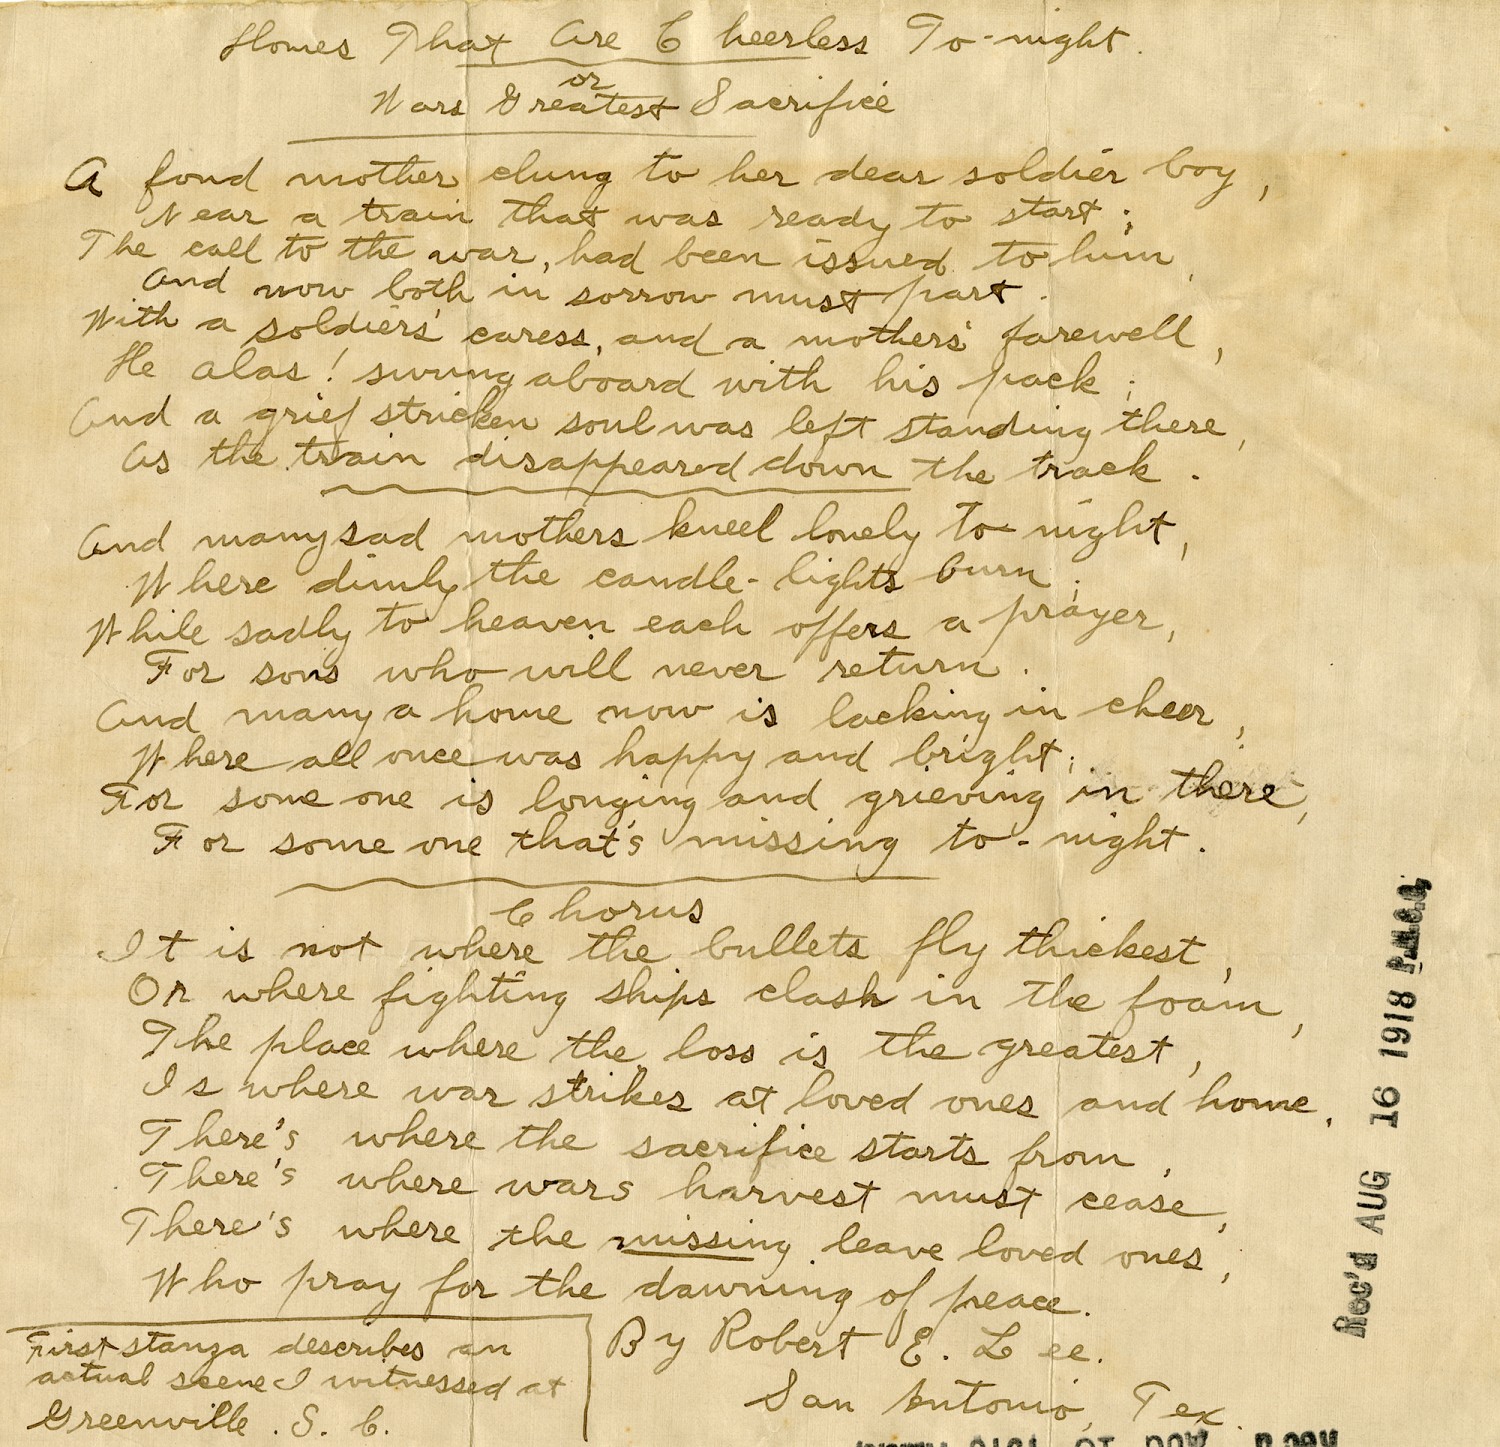 Homes That Are Cheerless To-night.
or
Wars Greatest Sacrifice
A fond mother clung to her dear soldier boy,
Near a train that was ready to start;
The call to the war, had been issued to him,
And now both in sorrow must part.
With a soldiers' caress, and a mothers' farewell,
He alas! swung aboard with his pack;
And a grief stricken soul was left standing there,
As the train disappeared down the track.
And many sad mothers kneel lonely to-night,
Where dimly the candle-lights burn;
While sadly to heaven each offers a prayer,
For sons who will never return.
And many a home now is lacking in cheer,
Where all once was happy and bright;
For some one is longing and grieving in there,
For some one that's missing to-night.
Chorus
It is not where the bullets fly thickest,
Or where fighting ships clash in the foam,
The place where the loss is the greatest,
Is where war strikes at loved ones and home.
There's where the sacrifice starts from,
There's where wars harvest must cease,
There's where the missing leave loved ones,
Who pray for the dawning of peace.
By Robert E. Lee.
San Antonio, Tex.
First stanza describes an
actual scene I witnessed at
Greenville. S. C.
Rec'd AUG 16 1918